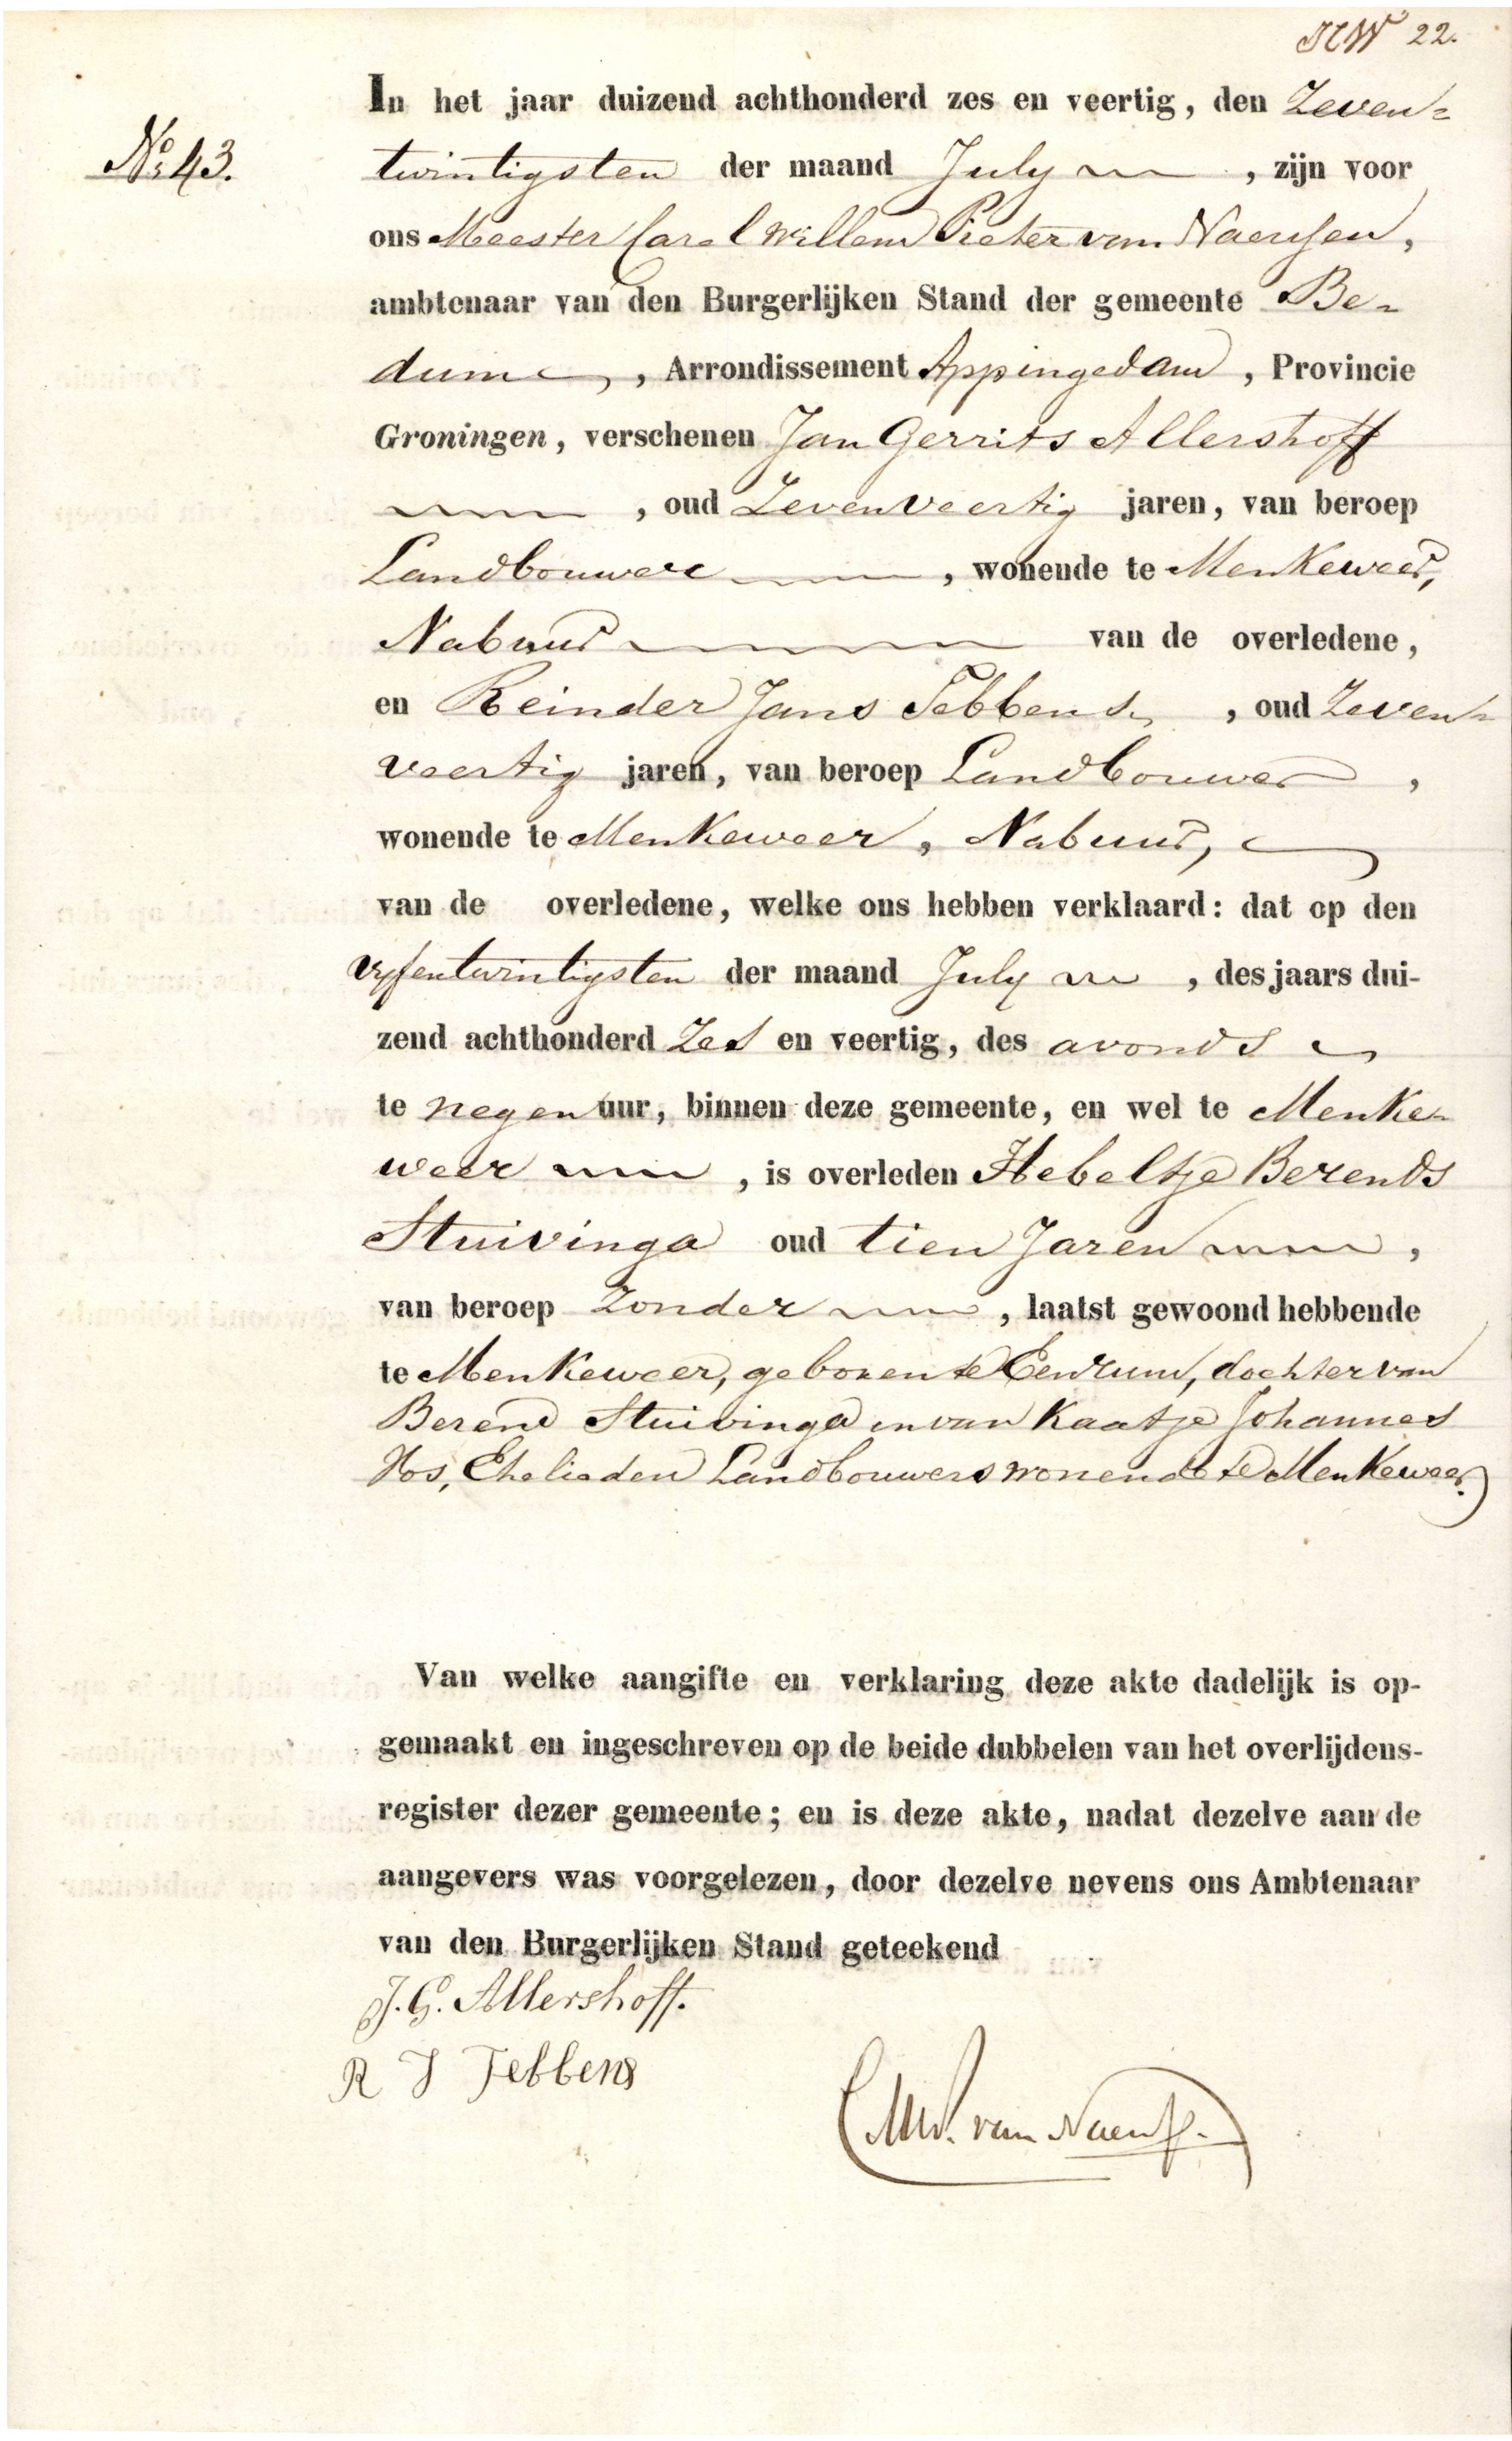 22.
In het jaar duizend achthonderd zes en veertig, den Zeven=
No 43.
twintigsten der maand July, zijn voor
ons Meester Carel Willem Pieter van Naerssen,
ambtenaar van den Burgerlijken Stand der gemeente Be-
dum, Arrondissement Appingedam, Provincie
Groningen, verschenen Jan Gerrits Allershoff
, oud Zevenveertig jaren, van beroep
Landbouwer, wonende te Menkeweer,
Nabuur van de overledene,
en Reinder Jans Tebbens, oud Zeven=
veertig jaren, van beroep Landbouwer,
wonende te Menkeweer, Nabuur,
van de overledene, welke ons hebben verklaard: dat op den
vyfentwintigsten der maand July, des jaars dui-
zend achthonderd Zes en veertig, des avonds
te negen uur, binnen deze gemeente, en wel te Menke-
weer, is overleden Hebeltje Berends
Stuivinga oud tien Jaren,
van beroep Zonder, laatst gewoond hebbende
te Menkeweer, geboren te Eenrum, dochter van
Berend Stuivinga en van Kaatje Johannes
Hos, Ehelieden Landbouwers wonende te Menkeweer.
Van welke aangifte en verklaring deze akte dadelijk is op-
gemaakt en ingeschreven op de beide dubbelen van het overlijdens-
register dezer gemeente; en is deze akte, nadat dezelve aan de
aangevers was voorgelezen, door dezelve nevens ons Ambtenaar
van den Burgerlijken Stand geteekend
J. G. Allershoff.
R J Tebbens
van Naerss.